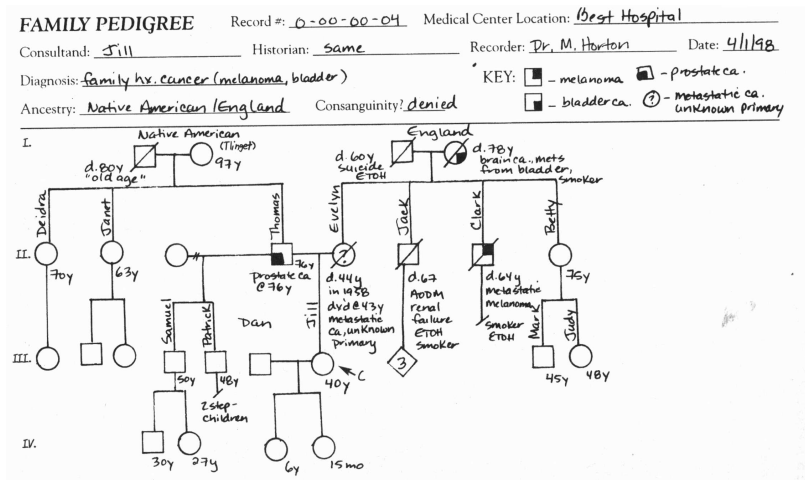 FAMILY PEDIGREE Record #: 0-00-00-04 Medical Center Location: Best Hospital
Consultand: Jill Historian: same Recorder: Dr. M. Horton Date: 4/1/98
Diagnosis: family hx. cancer (melanoma, bladder) KEY: - melanoma - prostate ca.
Ancestry: Native American/England Consanguinity? denied - bladder ca. ? - metastatic ca. unknown primary
I.
Native American
(Tlinget)
97y
d.80y
"old age"
England
d.60y
suicide
ETOH
d.78y
brain ca., mets
from bladder,
smoker
II.
Deidra
70y
Janet
63y
Thomas
76y
prostate ca
@ 76y
Evelyn
?
d.44y
in 1958
dvd @ 43y
metastatic
ca, unknown
primary
Jack
d.67
AODM
renal
failure
ETOH
smoker
Clark
d.64y
metastatic
melanoma
smoker
ETOH
Betty
75y
III.
Samuel
50y
Patrick
48y
2 step-
children
Dan
Jill
40y
C
3
Mark
45y
Judy
48y
IV.
30y
27y
6y
15mo